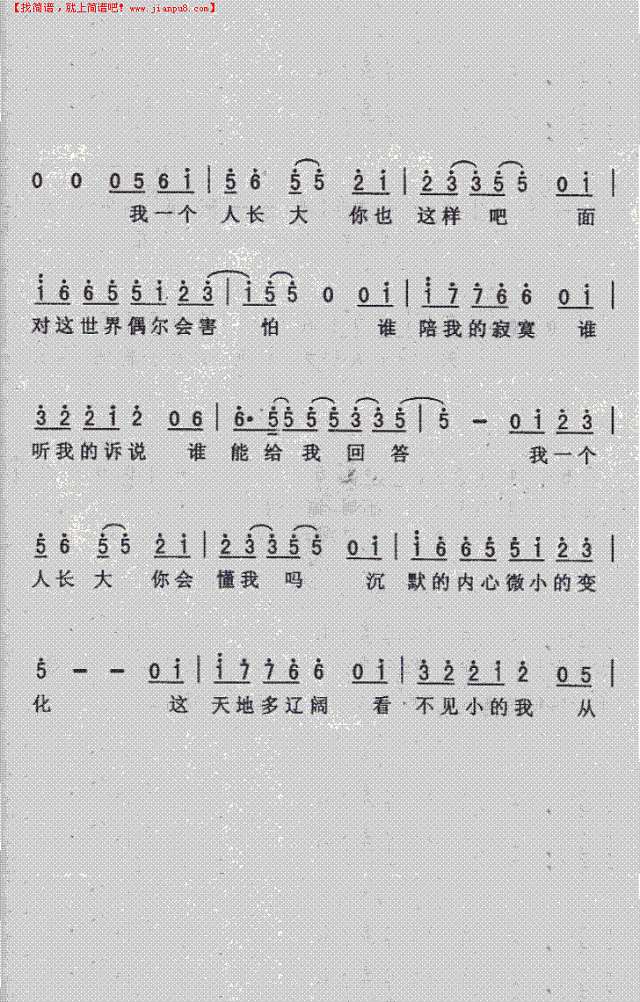 【找简谱，就上简谱吧! www.jianpu8.com】
0 0 05 6i | 56 55 2i | 23355 0i |
我一个 人长大 你也 这样 吧 面
i6 65 5i 23 | i55 0 0i | i7 76 6 0i |
对这世界偶尔会害 怕 谁 陪我的寂寞 谁
32 2i 2 06 | 6· 555 533 5 | 5 － 0i 23 |
听我的诉说 谁 能给我 回 答 我一个
56 55 2i | 23355 0i | i6 65 5i 23 |
人长大 你会 懂我 吗 沉 默的内心微小的变
5 － － 0i | i7 76 6 0i | 32 2i 2 05 |
化 这 天地多辽阔 看 不见小的我 从